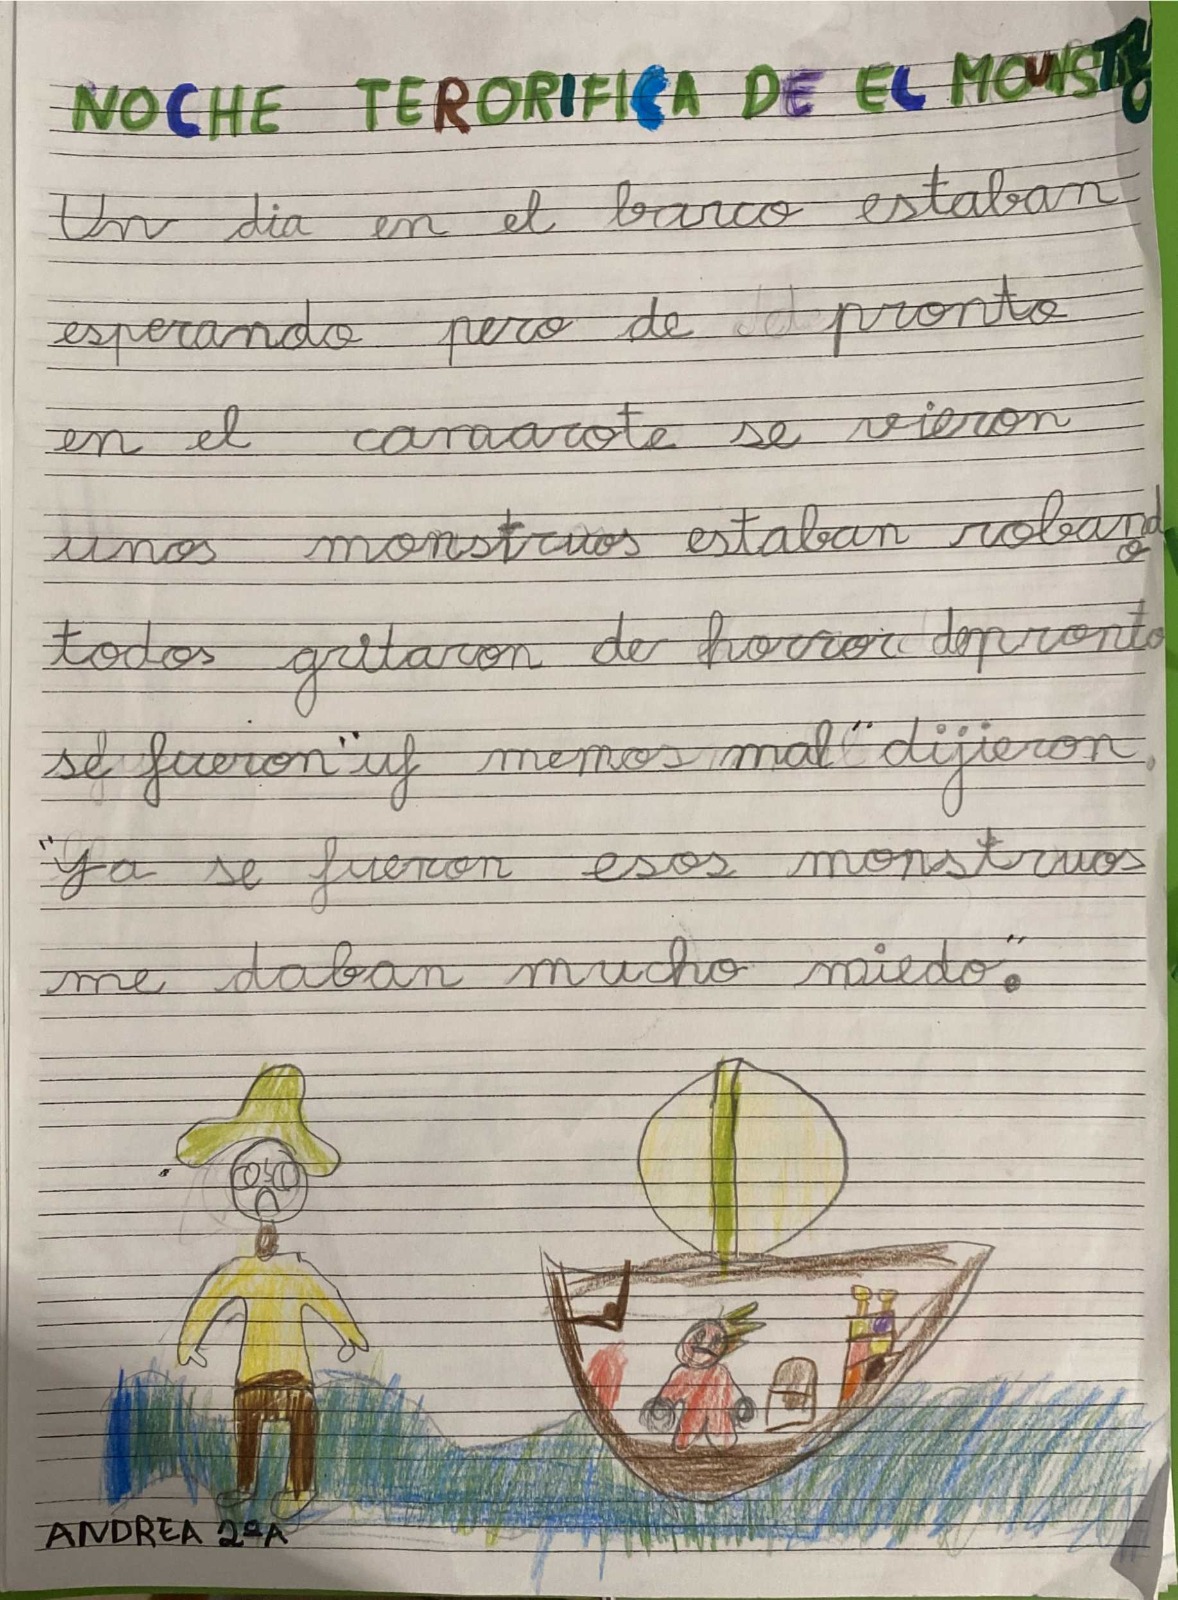 NOCHE TERORIFICA DE EL MOUNSTRO
Un dia en el barco estaban
esperando pero de pronto
en el camarote se vieron
unos monstruos estaban robando
todos gritaron de horror depronto
se fueron "uf memos mal" dijieron.
"Ya se fueron esos monstruos
me daban mucho miedo".
ANDREA 2ºA